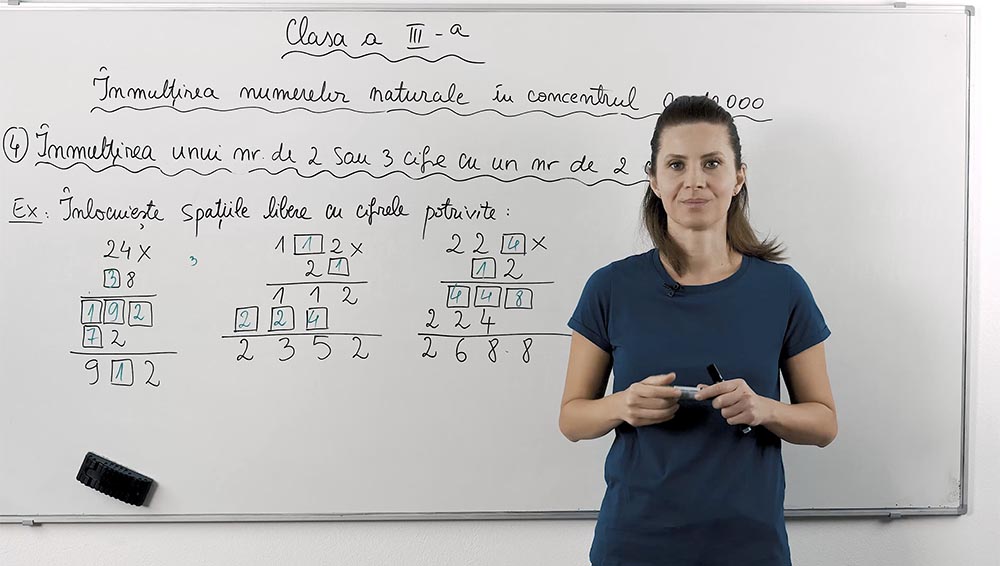 Clasa a III-a
Înmulțirea numerelor naturale în concentrul 000
④ Înmulțirea unui nr. de 2 sau 3 cifre cu un nr de 2
Ex: Înlocuiește spațiile libere cu cifrele potrivite:
24 x 3 1 1 2 x 2 2 4 x
3 8 2 1 1 2
1 9 2 1 1 2 4 4 8
7 2 2 2 4 2 2 4
9 1 2 2 3 5 2 2 6 8 8